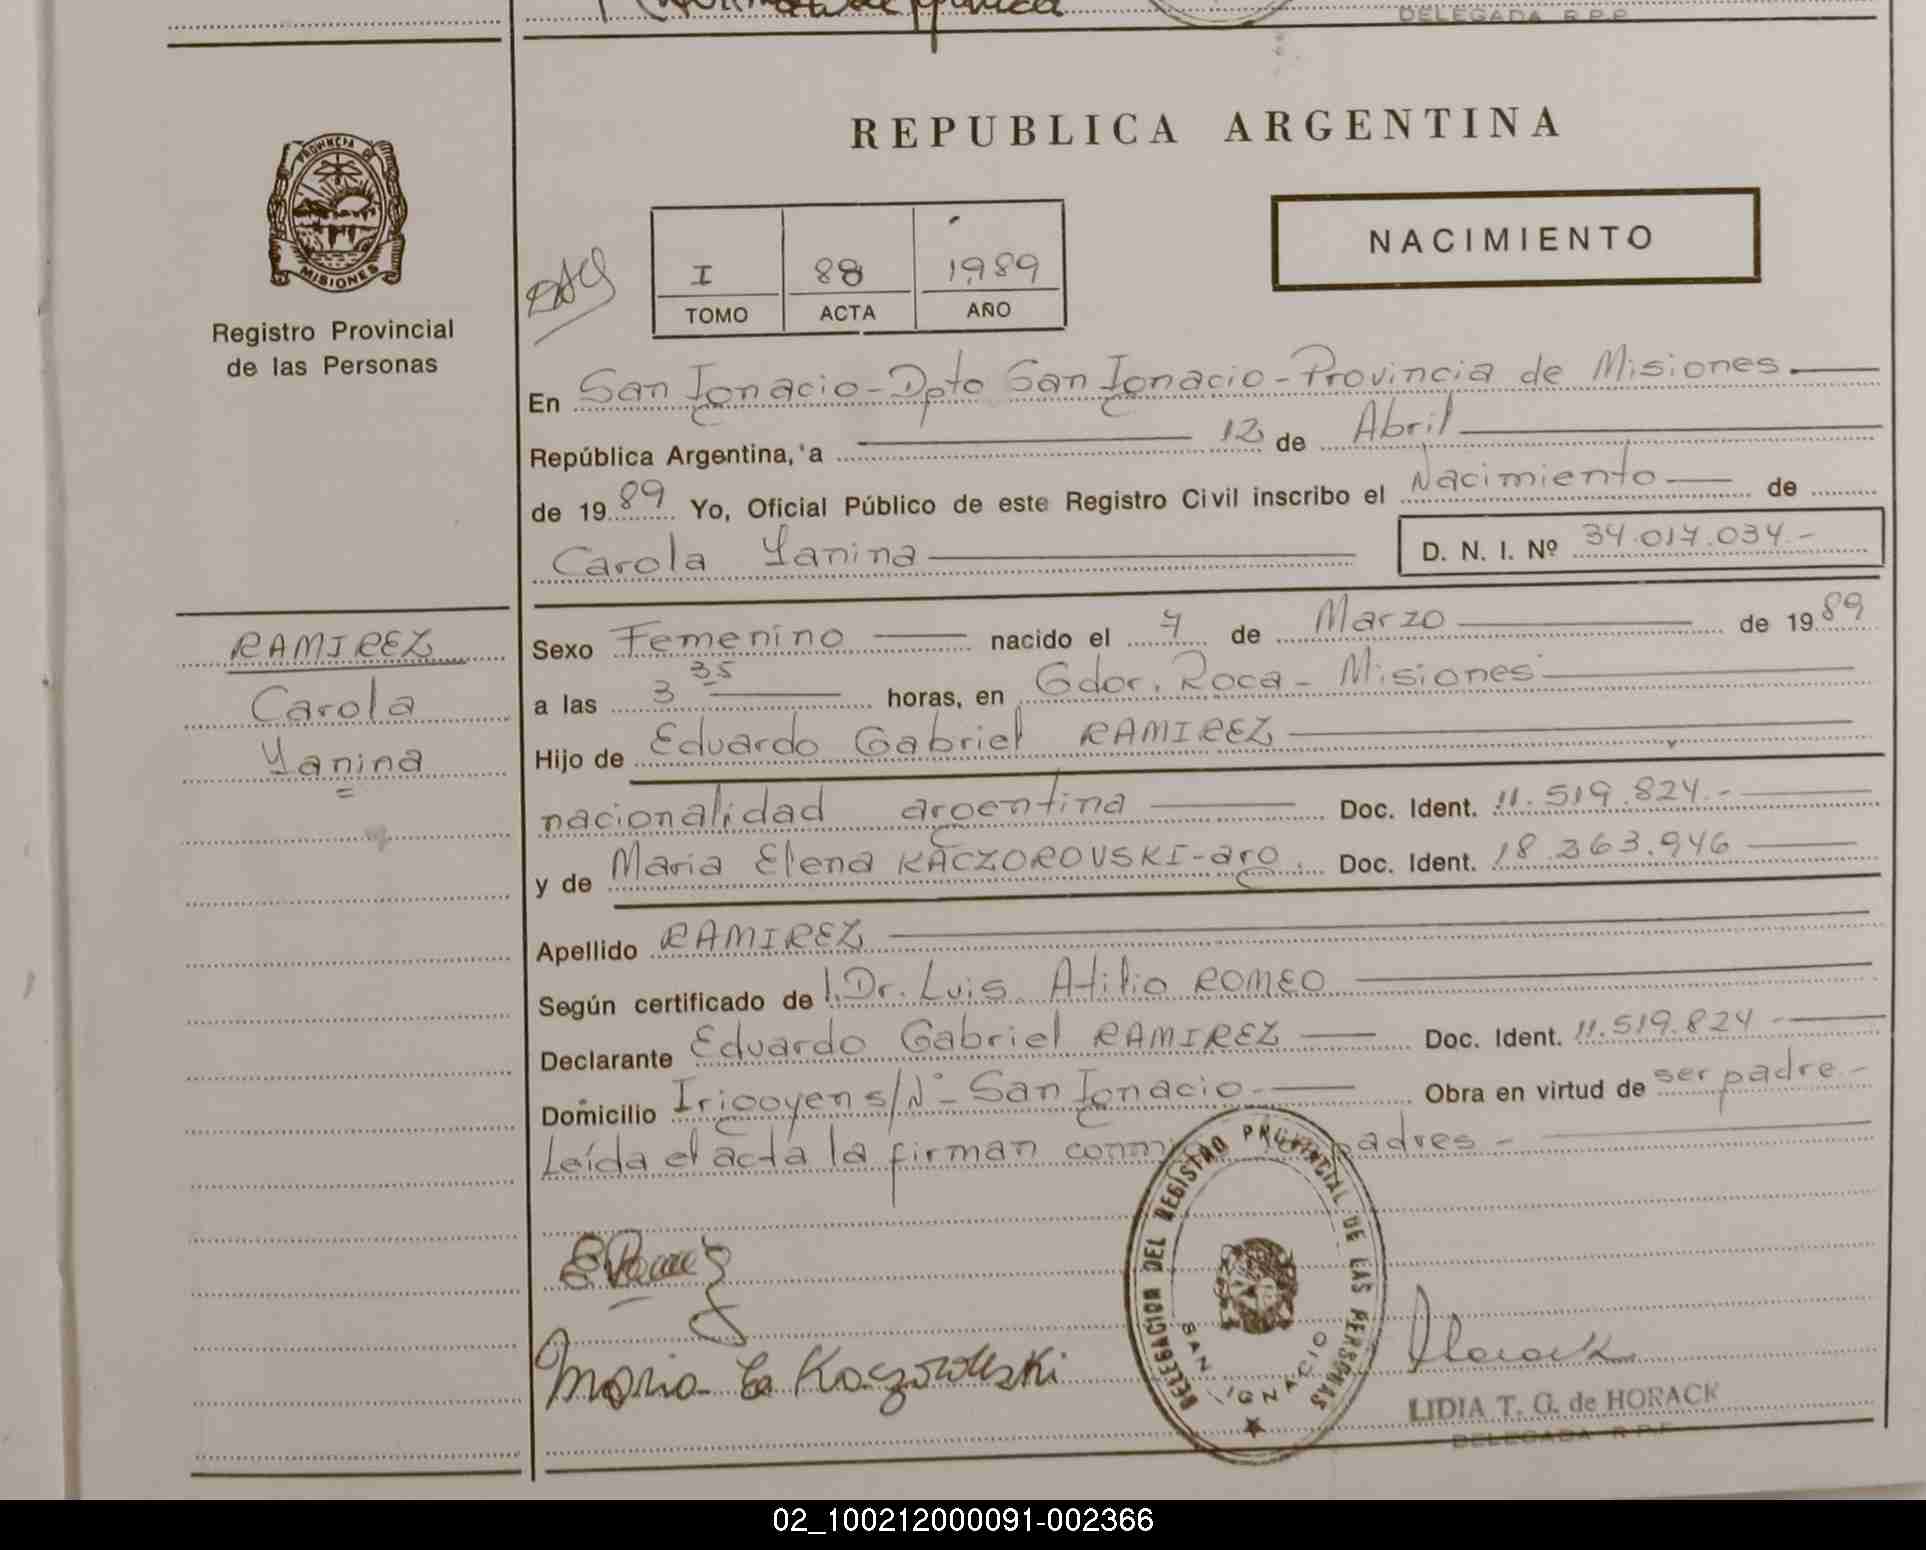 DELEGADA R.P.P.
PROVINCIA DE
MISIONES
Registro Provincial
de las Personas
REPUBLICA ARGENTINA
NACIMIENTO
I 88 1989
TOMO ACTA AÑO
En San Ignacio - Dpto San Ignacio - Provincia de Misiones.
República Argentina, a 12 de Abril
de 1989 Yo, Oficial Público de este Registro Civil inscribo el Nacimiento de
Carola Yanina D. N. I. Nº 34.017.034.-
RAMIREZ
Carola
Yanina
Sexo Femenino nacido el 7 de Marzo de 1989
a las 3 35 horas, en Gdor. Roca - Misiones
Hijo de Eduardo Gabriel RAMIREZ
nacionalidad argentina Doc. Ident. 11.519.824.-
y de Maria Elena KACZOROVSKI - arg. Doc. Ident. 18.363.946
Apellido RAMIREZ
Según certificado de Dr. Luis Atilio ROMEO
Declarante Eduardo Gabriel RAMIREZ Doc. Ident. 11.519.824 -
Domicilio Irigoyen s/Nº - San Ignacio - Obra en virtud de ser padre -
Leída el acta la firman padres -
DELEGACION DEL REGISTRO PROVINCIAL DE LAS PERSONAS
SAN IGNACIO
Maria E Kaczorowski
LIDIA T. G. de HORACK
DELEGADA R.P.P.
02_100212000091-002366